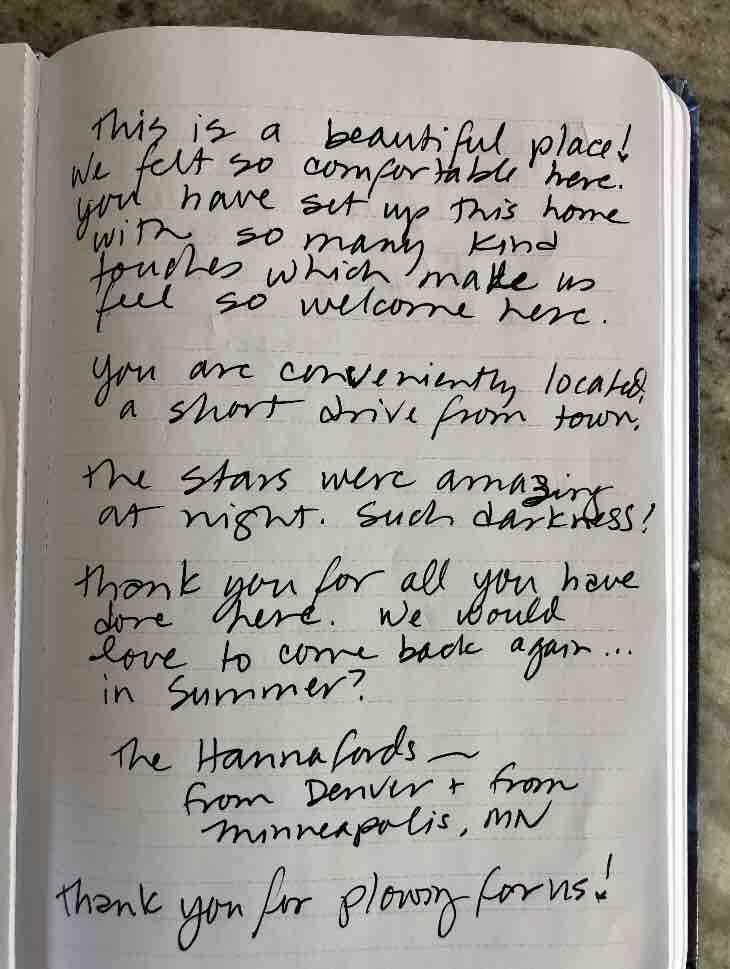 This is a beautiful place!
We felt so comfortable here.
You have set up this home
with so many kind
touches which make us
feel so welcome here.
You are conveniently located,
a short drive from town.
The stars were amazing
at night. Such darkness!
Thank you for all you have
done here. We would
love to come back again...
in Summer?
The Hannafords —
from Denver + from
Minneapolis, MN
Thank you for plowing for us!